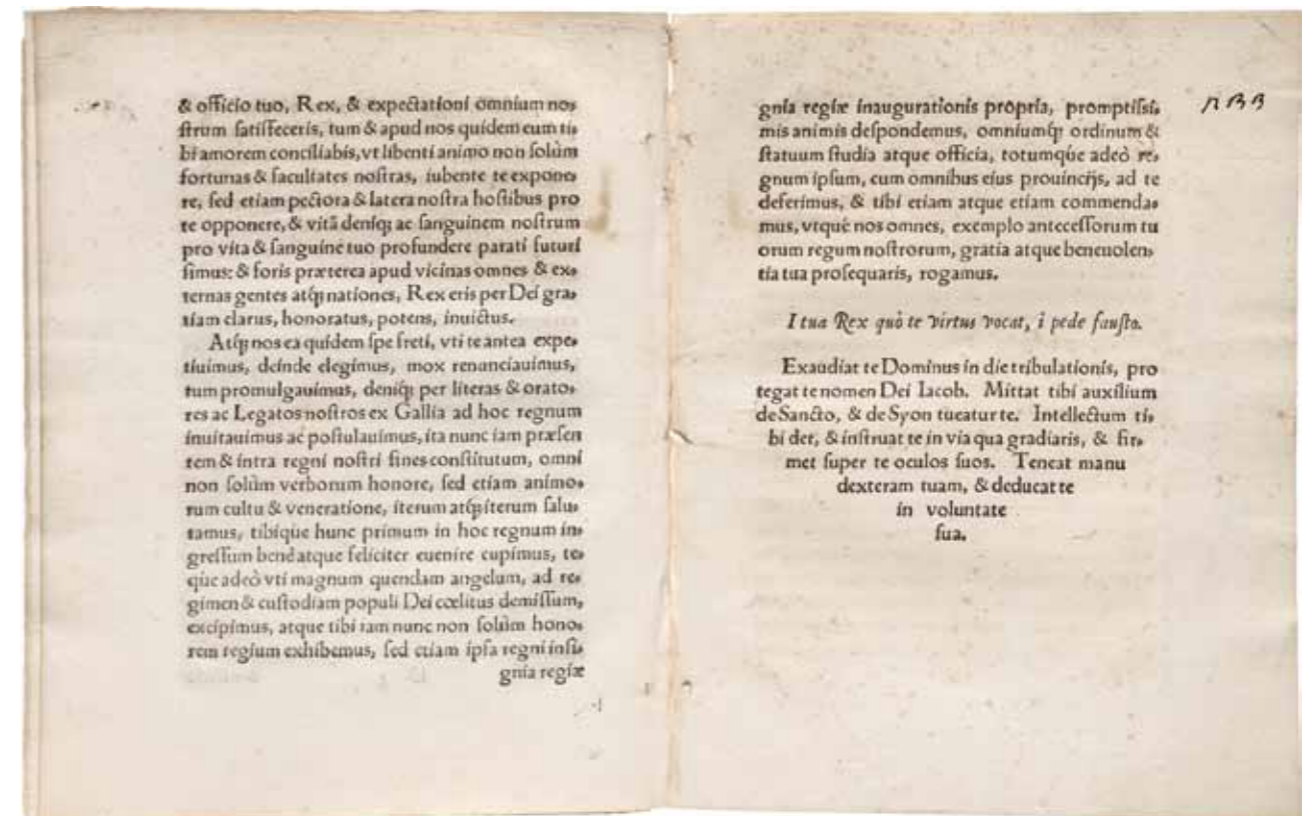 & officio tuo, Rex, & expectationi omnium no⸗
ſtrum ſatiſfeceris, tum & apud nos quidem eum ti⸗
bi amorem conciliabis, vt libenti animo non ſolùm
fortunas & facultates noſtras, iubente te expone⸗
re, ſed etiam pectora & latera noſtra hoſtibus pro
te opponere, & vitā deniq; ac ſanguinem noſtrum
pro vita & ſanguine tuo profundere parati futuri
ſimus: & foris præterea apud vicinas omnes & ex⸗
ternas gentes atq; nationes, Rex eris per Dei gra⸗
tiam clarus, honoratus, potens, inuictus.
Atq; nos ea quidem ſpe freti, vti te antea expe⸗
tiuimus, deinde elegimus, mox renunciauimus,
tum promulgauimus, deniq; per literas & orato⸗
res ac Legatos noſtros ex Gallia ad hoc regnum
inuitauimus ac poſtulauimus, ita nunc iam præſen
tem & intra regni noſtri fines conſtitutum, omni
non ſolùm verborum honore, ſed etiam animo⸗
rum cultu & veneratione, iterum atq; iterum ſalu⸗
tamus, tibique hunc primum in hoc regnum in⸗
greſſum benè atque feliciter euenire cupimus, te⸗
que adeò vti magnum quendam angelum, ad re⸗
gimen & cuſtodiam populi Dei cœlitus demiſſum,
excipimus, atque tibi iam nunc non ſolùm hono⸗
rem regium exhibemus, ſed etiam ipſa regni inſi⸗
gnia regiæ
gnia regiæ inaugurationis propria, promptiſsi⸗
mis animis deſpondemus, omniumq; ordinum &
ſtatuum ſtudia atque officia, totumque adeò re⸗
gnum ipſum, cum omnibus eius prouincijs, ad te
deferimus, & tibi etiam atque etiam commenda⸗
mus, vtque nos omnes, exemplo anteceſſorum tu
orum regum noſtrorum, gratia atque beneuolen⸗
tia tua proſequaris, rogamus.
I tua Rex quò te virtus vocat, i pede fauſto.
Exaudiat te Dominus in die tribulationis, pro
tegat te nomen Dei Iacob. Mittat tibi auxilium
de Sancto, & de Syon tueatur te. Intellectum ti⸗
bi det, & inſtruat te in via qua gradiaris, & fir⸗
met ſuper te oculos ſuos. Teneat manu
dexteram tuam, & deducat te
in voluntate
ſua.